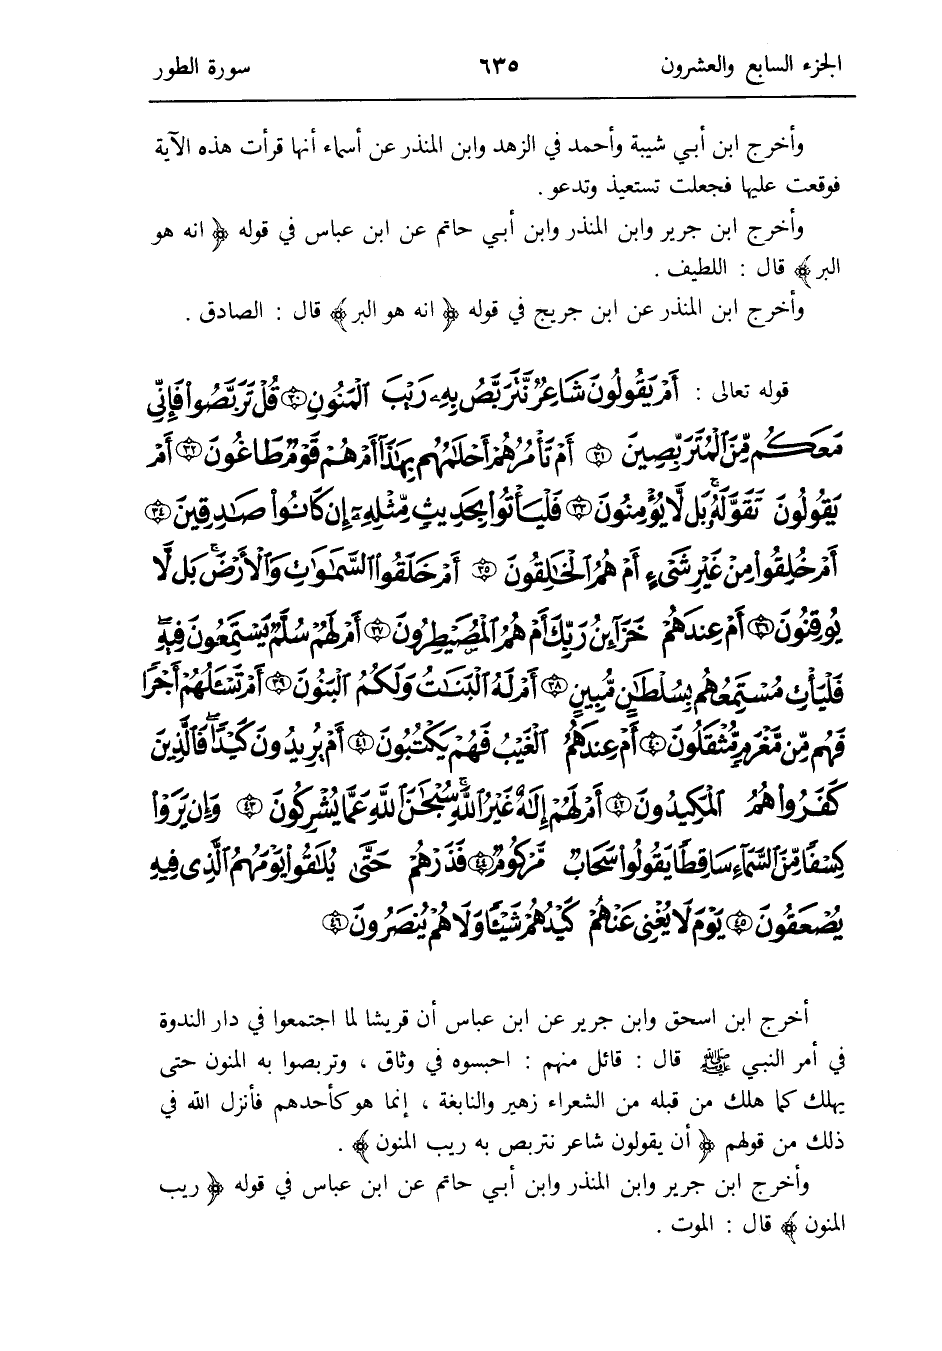 الجزء السابع والعشرون ٦٣٥ سورة الطور
وأخرج ابن أبي شيبة وأحمد في الزهد وابن المنذر عن أسماء أنها قرأت هذه الآية
فوقعت عليها فجعلت تستعيذ وتدعو .
وأخرج ابن جرير وابن المنذر وابن أبي حاتم عن ابن عباس في قوله ﴿ انه هو
البر ﴾ قال : اللطيف .
وأخرج ابن المنذر عن ابن جريج في قوله ﴿ انه هو البر ﴾ قال : الصادق .
قوله تعالى : أَمْ يَقُولُونَ شَاعِرٌ نَّتَرَبَّصُ بِهِۦ رَيْبَ الْمَنُونِ ٣٠ قُلْ تَرَبَّصُوا۟ فَإِنِّى
مَعَكُم مِّنَ الْمُتَرَبِّصِينَ ٣١ أَمْ تَأْمُرُهُمْ أَحْلَٰمُهُم بِهَٰذَآ أَمْ هُمْ قَوْمٌ طَاغُونَ ٣٢ أَمْ
يَقُولُونَ تَقَوَّلَهُۥ بَل لَّا يُؤْمِنُونَ ٣٣ فَلْيَأْتُوا۟ بِحَدِيثٍ مِّثْلِهِۦٓ إِن كَانُوا۟ صَٰدِقِينَ ٣٤
أَمْ خُلِقُوا۟ مِنْ غَيْرِ شَىْءٍ أَمْ هُمُ الْخَٰلِقُونَ ٣٥ أَمْ خَلَقُوا۟ السَّمَٰوَٰتِ وَالْأَرْضَ بَل لَّا
يُوقِنُونَ ٣٦ أَمْ عِندَهُمْ خَزَآئِنُ رَبِّكَ أَمْ هُمُ الْمُصَۣيْطِرُونَ ٣٧ أَمْ لَهُمْ سُلَّمٌ يَسْتَمِعُونَ فِيهِ
فَلْيَأْتِ مُسْتَمِعُهُم بِسُلْطَٰنٍ مُّبِينٍ ٣٨ أَمْ لَهُ الْبَنَٰتُ وَلَكُمُ الْبَنُونَ ٣٩ أَمْ تَسْـَٔلُهُمْ أَجْرًا
فَهُم مِّن مَّغْرَمٍ مُّثْقَلُونَ ٤٠ أَمْ عِندَهُمُ الْغَيْبُ فَهُمْ يَكْتُبُونَ ٤١ أَمْ يُرِيدُونَ كَيْدًا فَالَّذِينَ
كَفَرُوا۟ هُمُ الْمَكِيدُونَ ٤٢ أَمْ لَهُمْ إِلَٰهٌ غَيْرُ اللَّهِ سُبْحَٰنَ اللَّهِ عَمَّا يُشْرِكُونَ ٤٣ وَإِن يَرَوْا۟
كِسْفًا مِّنَ السَّمَآءِ سَاقِطًا يَقُولُوا۟ سَحَابٌ مَّرْكُومٌ ٤٤ فَذَرْهُمْ حَتَّىٰ يُلَٰقُوا۟ يَوْمَهُمُ الَّذِى فِيهِ
يُصْعَقُونَ ٤٥ يَوْمَ لَا يُغْنِى عَنْهُمْ كَيْدُهُمْ شَيْـًٔا وَلَا هُمْ يُنصَرُونَ ٤٦
أخرج ابن اسحق وابن جرير عن ابن عباس أن قريشا لما اجتمعوا في دار الندوة
في أمر النبي ﷺ قال : قائل منهم : احبسوه في وثاق ، وتربصوا به المنون حتى
يهلك كما هلك من قبله من الشعراء زهير والنابغة ، إنما هو كأحدهم فأنزل الله في
ذلك من قولهم ﴿ أن يقولون شاعر نتربص به ريب المنون ﴾ .
وأخرج ابن جرير وابن المنذر وابن أبي حاتم عن ابن عباس في قوله ﴿ ريب
المنون ﴾ قال : الموت .